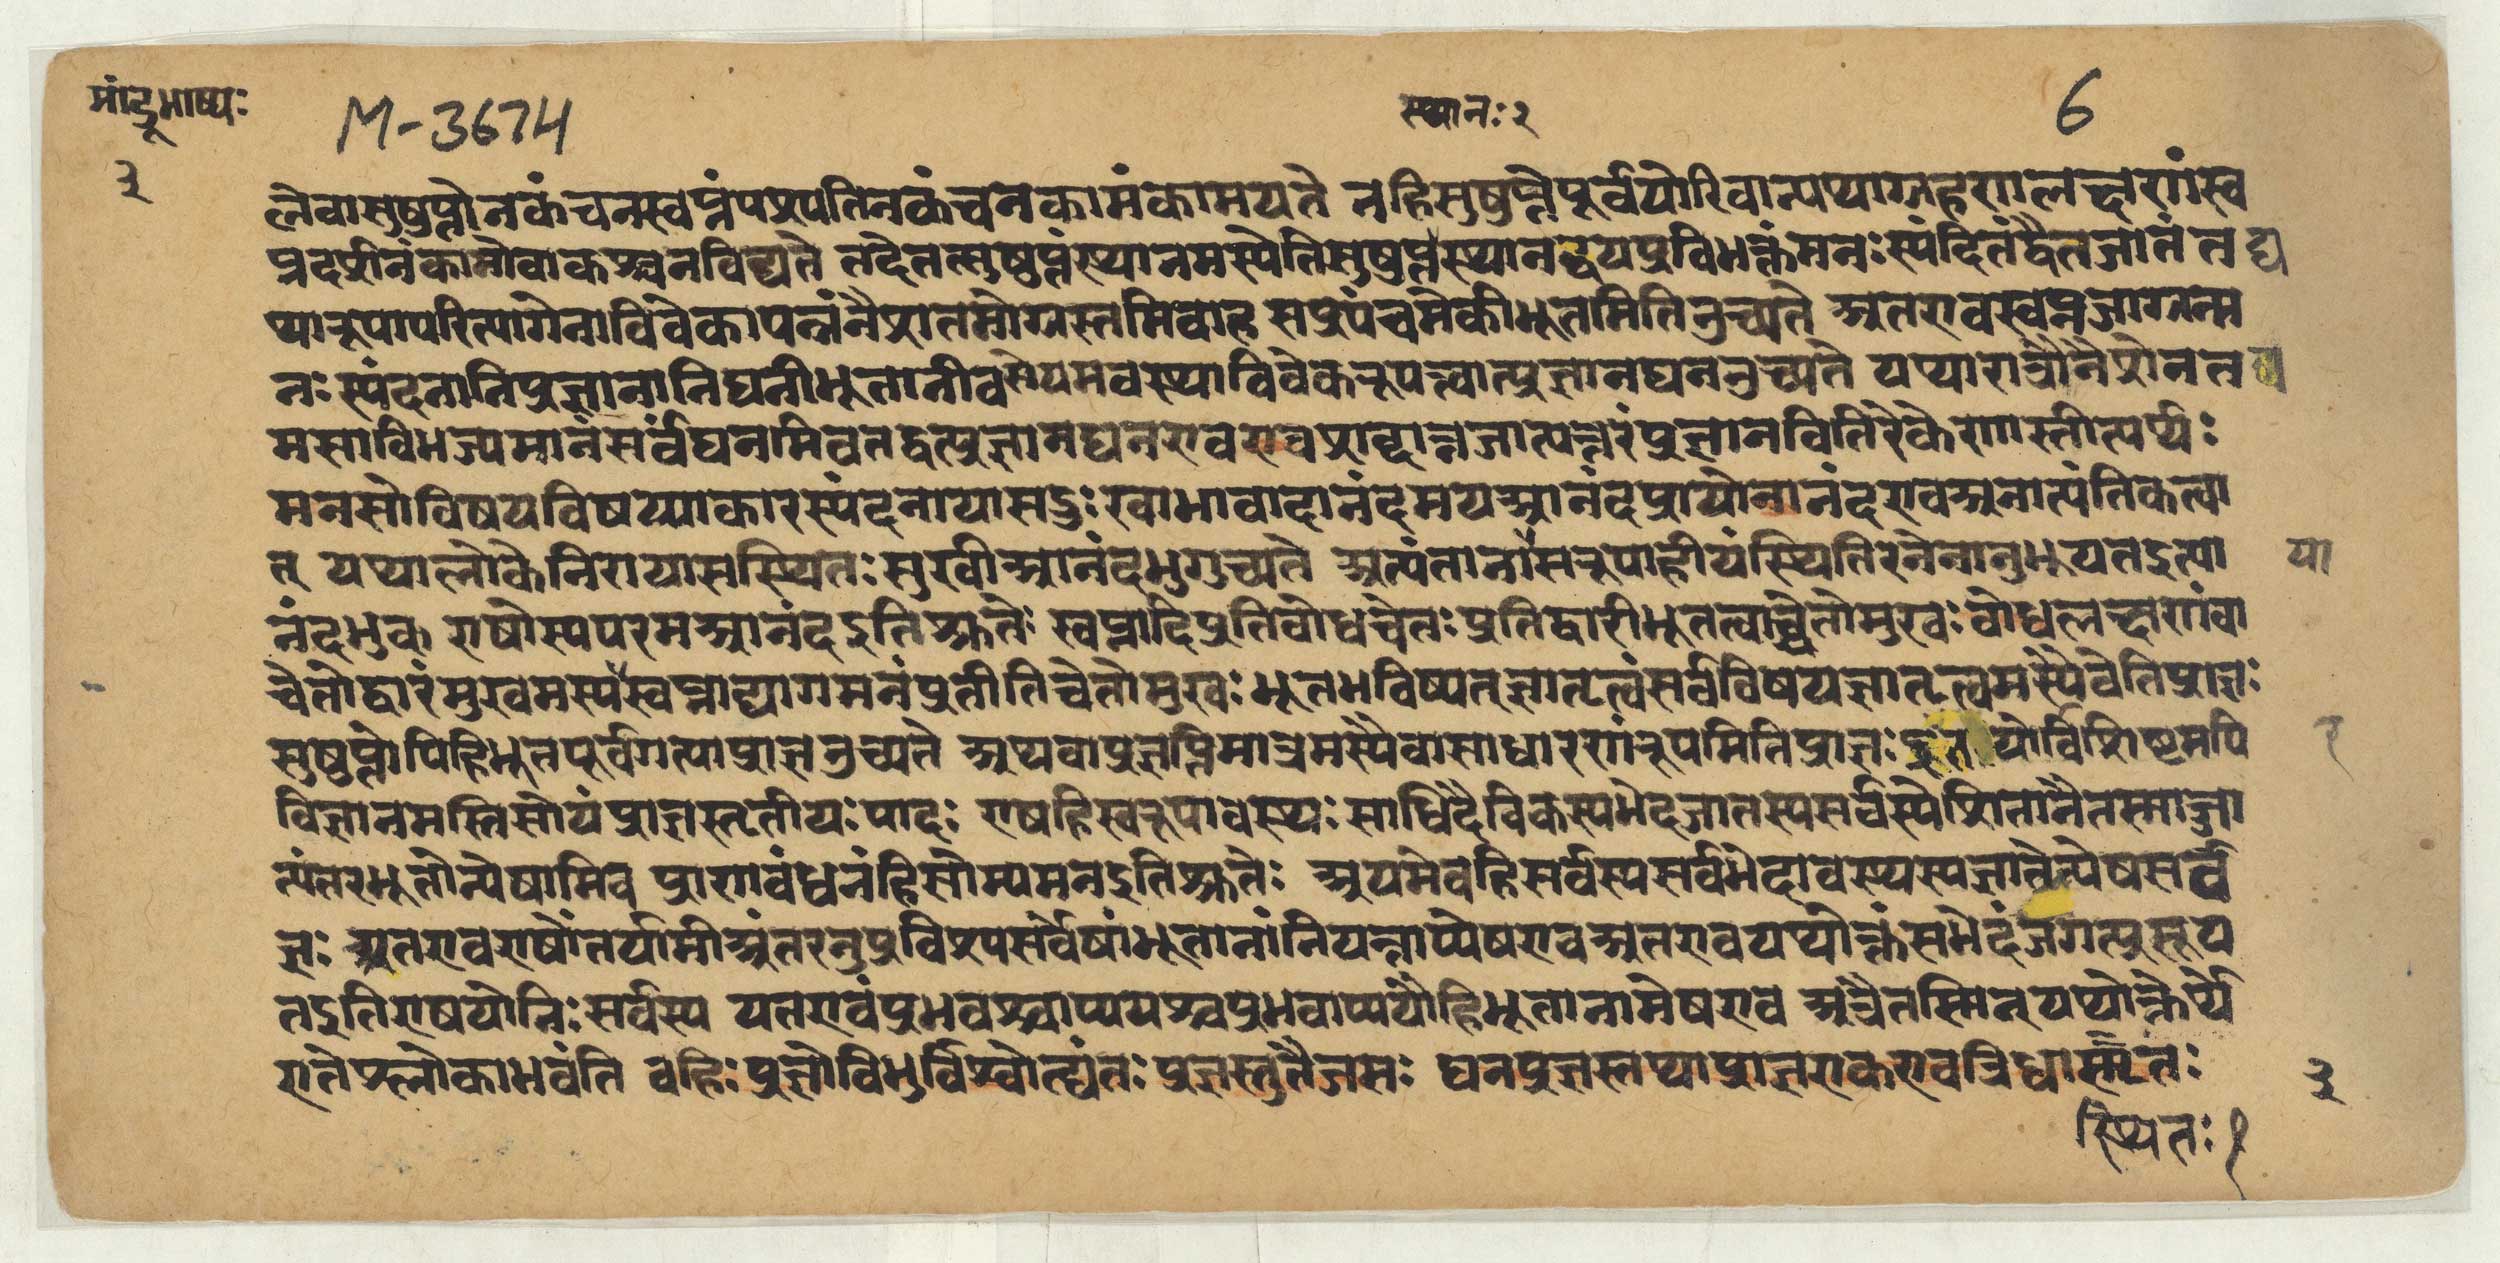 मांडूभाष्यः
३
M-3674
स्थानः २
6
लेवासुषुप्तोनकंचनस्वप्नंपश्यतिनकंचनकामंकामयते नहिसुषुप्तेपूर्वयोरिवान्यथाग्रहणलक्षणंस्व
प्नदर्शनंकामोवाकश्चनविद्यते तदेतत्सुषुप्तंस्थानमस्येतिसुषुप्तस्थानद्वयप्रविभक्तंमनःस्पंदितंद्वैतजातंत
थारूपापरित्यागेनाविवेकापन्नंनैशतमोग्रस्तमिवाह सप्रपंचमेकीभूतमितिउच्यते अतएवस्वप्नजाग्रन्म
नःस्पंदनानिप्रज्ञानानिघनीभूतानीवसेयमवस्थाविवेकरूपत्वात्प्रज्ञानघनउच्यते यथारात्रौनैशेनत
मसाविभज्यमानंसर्वंघनमिवतद्वत्प्रज्ञानघनएवएवशब्दान्नजात्यन्तरंप्रज्ञानवितिरेकेणास्तीत्यर्थः
मनसोविषयविषय्याकारस्पंदनायासदुःखाभावादानंदमयआनंदप्रायोनानंदएवअनात्यंतिकत्वा
त् यथालोकेनिरायासस्थितः सुखीआनंदभुगुच्यते अत्यंतानासरूपाहीयंस्थितिरनेनानुभूयतइत्या
या
नंदभुक् एषोस्यपरमआनंदइतिश्रुतेः स्वप्नादिप्रतिबोधचेतःप्रतिद्वारीभूतत्वाच्चेतोमुखः बोधलक्षणंवा
चेतोद्वारंमुखमस्यस्वप्नाद्यागमनंप्रतीतिचेतोमुखः भूतभविष्यत्ज्ञातृत्वंसर्वविषयज्ञातृत्वमस्यैवेतिप्राज्ञः
सुषुप्तोपिहिभूतपूर्वगत्याप्राज्ञउच्यते अथवाप्रज्ञप्तिमात्रमस्यैवासाधारणंरूपमितिप्राज्ञः इत योर्विशिष्टमपि
विज्ञानमस्तिसोयंप्राज्ञस्तृतीयःपादः एषहिस्वरूपावस्थः साधिदैविकस्यभेदजातस्यसर्वस्येशितानैतस्माज्जा
त्यंतरभूतोन्येषामिव प्राणबंधनंहिसोम्यमनइतिश्रुतेः अयमेवहिसर्वस्यसर्वभेदावस्थस्यज्ञातेत्येषसर्व
ज्ञः अतएवएषोंतर्यामीअंतरनुप्रविश्यसर्वेषांभूतानांनियन्ताप्येषएवअतएवयथोक्तंसभेदंजगत्प्रसूय
तइतिएषयोनिः सर्वस्य यतएवंप्रभवश्चाप्ययश्चप्रभवाप्ययौहिभूतानामेषएव अत्रैतस्मिन्यथोक्तेर्थे
एतेश्लोकाभवंति वहिःप्रज्ञोविभुर्विश्वोत्द्यंतः प्रज्ञस्तुतैजसः घनप्रज्ञस्तथाप्राज्ञएकएवत्रिधास्मृतः
३
स्थितः १